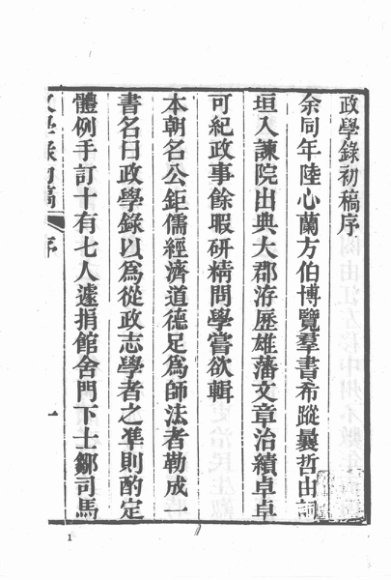 政學錄初稿序
余同年陸心蘭方伯博覽羣書希蹤曩哲由詞
垣入諫院出典大郡洊歷雄藩文章治績卓卓
可紀政事餘暇研精問學嘗欲輯
本朝名公鉅儒經濟道德足爲師法者勒成一
書名曰政學錄以爲從政志學者之準則酌定
體例手訂十有七人遽捐館舍門下士鄒司馬
政學錄初稿 序 一
1